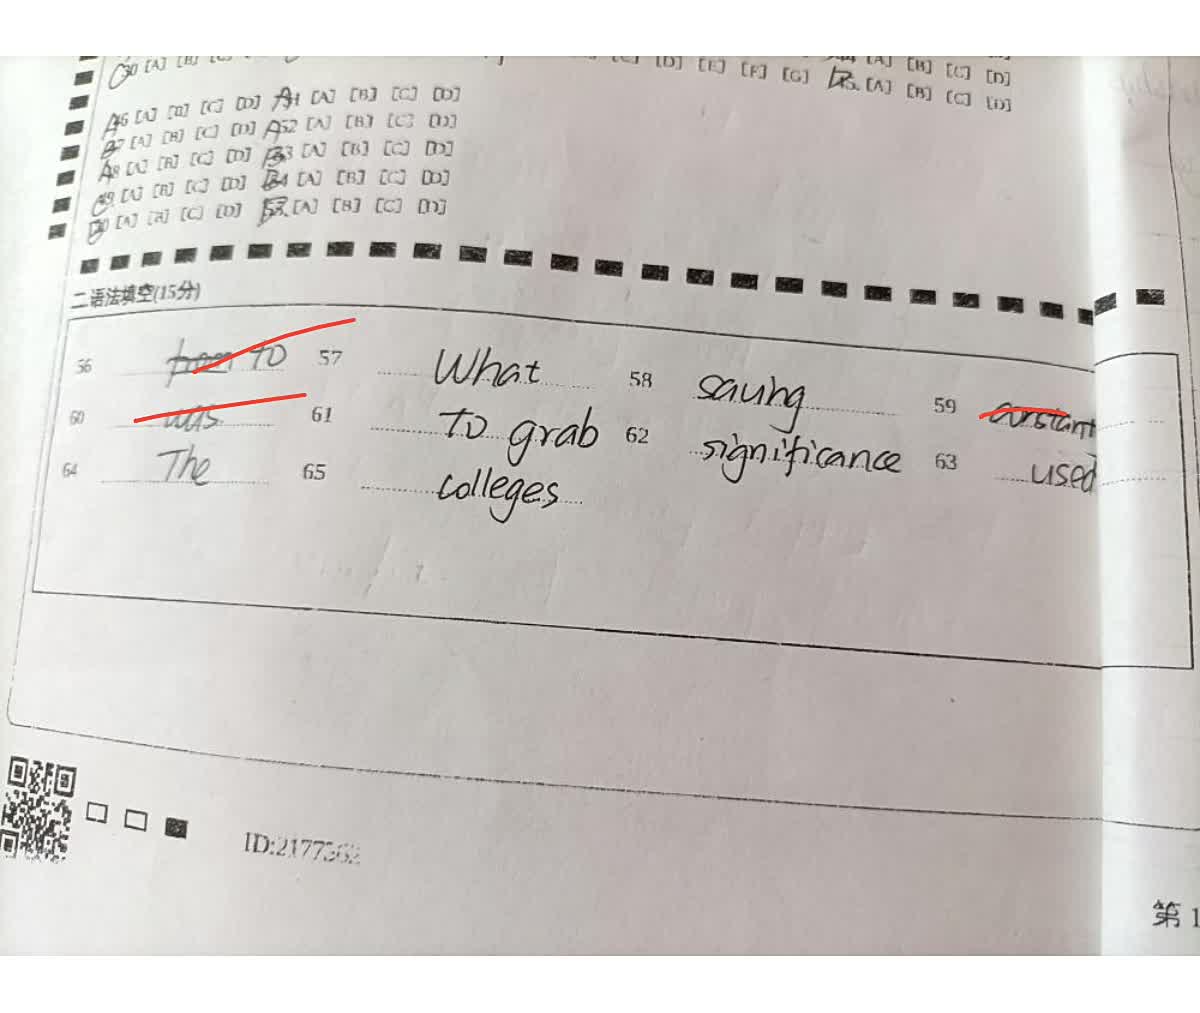 30 [A] [B] [C] [D] [E] [F] [G] [A] [B] [C] [D]
A 46 [A] [B] [C] [D] A 51 [A] [B] [C] [D] 55. [A] [B] [C] [D]
B 47 [A] [B] [C] [D] A 52 [A] [B] [C] [D]
A 48 [A] [B] [C] [D] B 53 [A] [B] [C] [D]
C 49 [A] [B] [C] [D] B 54 [A] [B] [C] [D]
B 50 [A] [B] [C] [D] 55. [A] [B] [C] [D]
二 语法填空(15分)
56 from to 57 What 58 sauing 59 constant
60 was 61 To grab 62 significance 63 used
64 The 65 colleges
ID:2177362
第 1